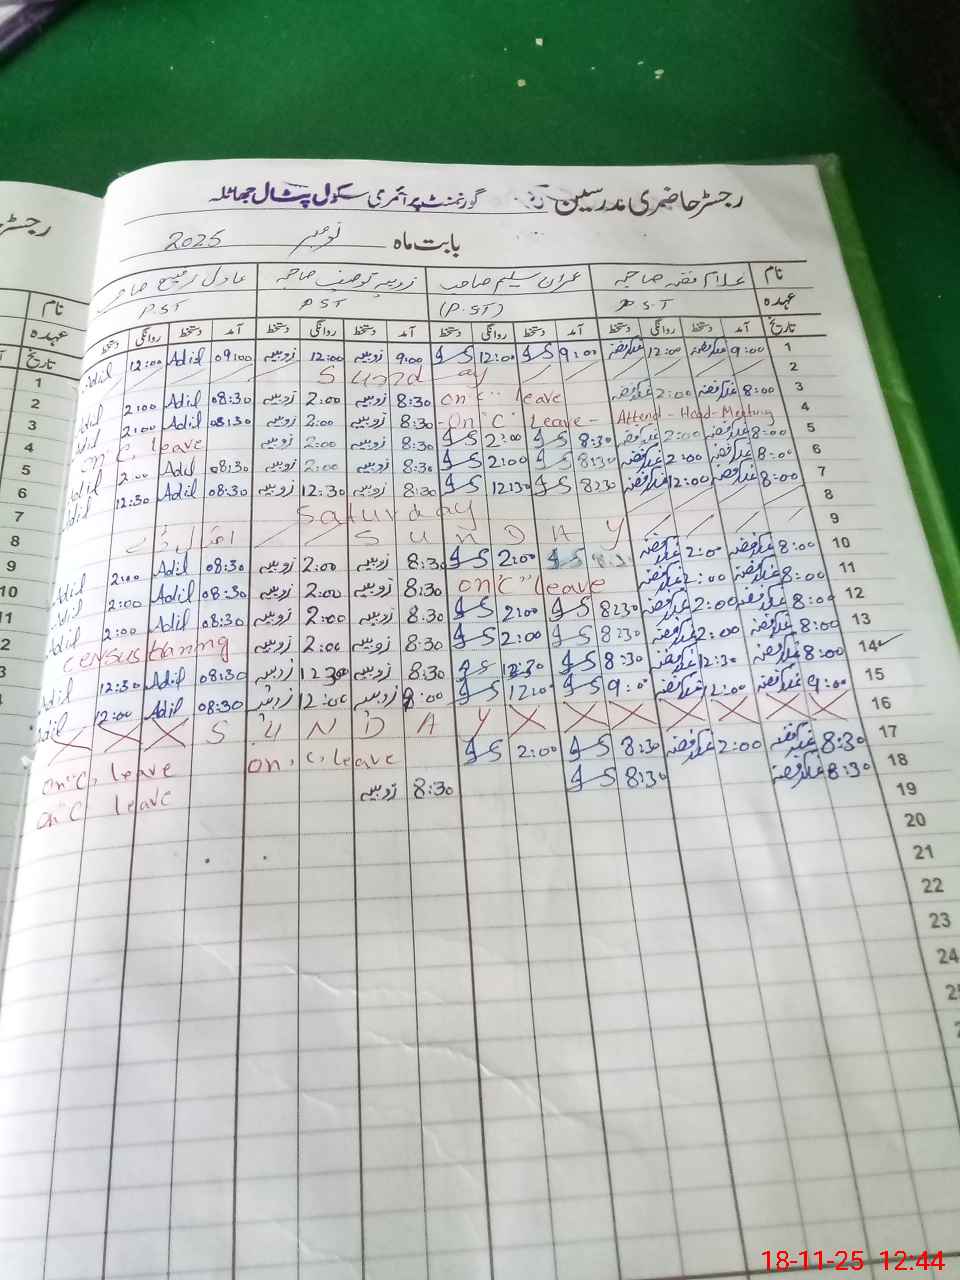 رجسٹر حاضری مدرسین گورنمنٹ پرائمری سکول پٹال جھاٹلہ
بابت ماہ نومبر 2025
نام غلام فضہ صاحبہ عمران سلیم صاحب زوبیہ توصیف صاحبہ عادل ربیع صاحب
عہدہ P.S.T (P.ST) P S T P.ST
تاریخ آمد دستخط روانگی دستخط آمد دستخط روانگی دستخط آمد دستخط روانگی دستخط آمد دستخط روانگی دستخط
1 9:00 12:00 9:00 12:00 9:00 زوبیہ 12:00 زوبیہ 09:00 Adil 12:00 Adil
2 Sunday
3 8:00 2:00 on "C" leave 8:30 زوبیہ 2:00 زوبیہ 08:30 Adil 2:00 Adil
4 Attend - Head - Meeting - On "C" Leave - 8:30 زوبیہ 2:00 زوبیہ 08:30 Adil 2:00 Adil
5 8:00 2:00 8:30 2:00 8:30 زوبیہ 2:00 زوبیہ on C leave
6 8:00 2:00 8:30 2:00 8:30 زوبیہ 2:00 زوبیہ 08:30 Adil 2:00 Adil
7 8:00 12:00 8:30 12:30 8:30 زوبیہ 12:30 زوبیہ 08:30 Adil 12:30 Adil
8 Saturday
9 SUNDAY
10 8:00 2:00 8:30 2:00 8:30 زوبیہ 2:00 زوبیہ 08:30 Adil 2:00 Adil
11 8:00 2:00 on "C" leave 8:30 زوبیہ 2:00 زوبیہ 08:30 Adil 2:00 Adil
12 8:00 2:00 8:30 2:00 8:30 زوبیہ 2:00 زوبیہ 08:30 Adil 2:00 Adil
13 8:00 2:00 8:30 2:00 8:30 زوبیہ 2:00 زوبیہ census traning
14 8:00 12:30 8:30 12:30 8:30 زوبیہ 12 30 زوبیہ 08:30 Adil 12:30 Adil
15 9:00 12:00 9:00 12:00 9:00 زوبیہ 12:00 زوبیہ 08:30 Adil 12:00 Adil
16 SUNDAY
17 8:30 2:00 8:30 2:00 on, C, leave on "C, leave
18 8:30 8:30 8:30 زوبیہ on "C leave
19
20
21
22
23
24
1
2
3
4
5
6
7
8
9
10
11
نام
عہدہ
تاریخ
18-11-25 12:44